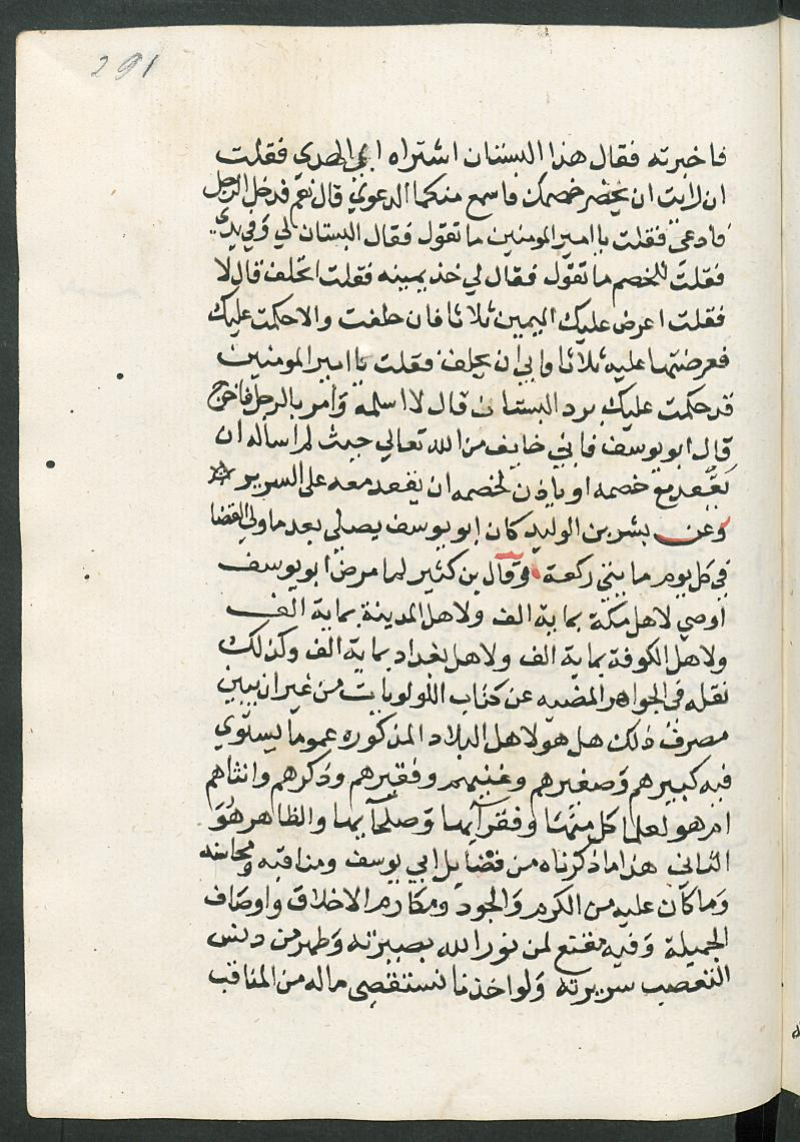 291
فاخبرته فقال هذا البستان اشتراه ابي المهدي فقلت
ان رايت ان يحضر خصمك فاسمع منكما الدعوي قال نعم فدخل الرجل
فادعي فقلت يا امير المومنين ما تقول فقال البستان لي وفي يدي
فقلت للخصم ما تقول فقال لي خذ يمينه فقلت اتحلف قال لا
فقلت اعرض عليك اليمين ثلاثا فان حلفت والا حكمت عليك
فعرضتها عليه ثلاثا وابي ان يحلف فقلت يا امير المومنين
قد حكمت عليك برد البستان قال لا اسلمه وامر بالرجل فاخرج
قال ابو يوسف فاني خايف من الله تعالي حيث لم اساله ان
يقعد مع خصمه او ياذن لخصمه ان يقعد معه على السرير
وعن بشر بن الوليد كان ابو يوسف يصلي بعد ما ولي القضا
في كل يوم مايتي ركعة وقال بن كثير لما مرض ابو يوسف
اوصي لاهل مكة بماية الف ولاهل المدينة بماية الف
ولاهل الكوفة بماية الف ولاهل بغداد بماية الف وكذلك
نقله في الجواهر المضيه عن كتاب اللولويات من غير ان يبين
مصرف ذلك هل هو لاهل البلاد المذكوره عموما يستوي
فيه كبيرهم وصغيرهم وغنيهم وفقيرهم وذكرهم وانثاهم
ام هو لعلما كل منها وفقرآيها وصلحآيها والظاهر هو
الثاني هذا ما ذكرناه من فضايل ابي يوسف ومناقبه ومحاسنه
وما كان عليه من الكرم والجود ومكارم الاخلاق واوصاف
الجميلة وفيه مقنع لمن نور الله بصيرته وطهر من دنس
التعصب سريرته ولو اخذنا نستقصي ماله من المناقب